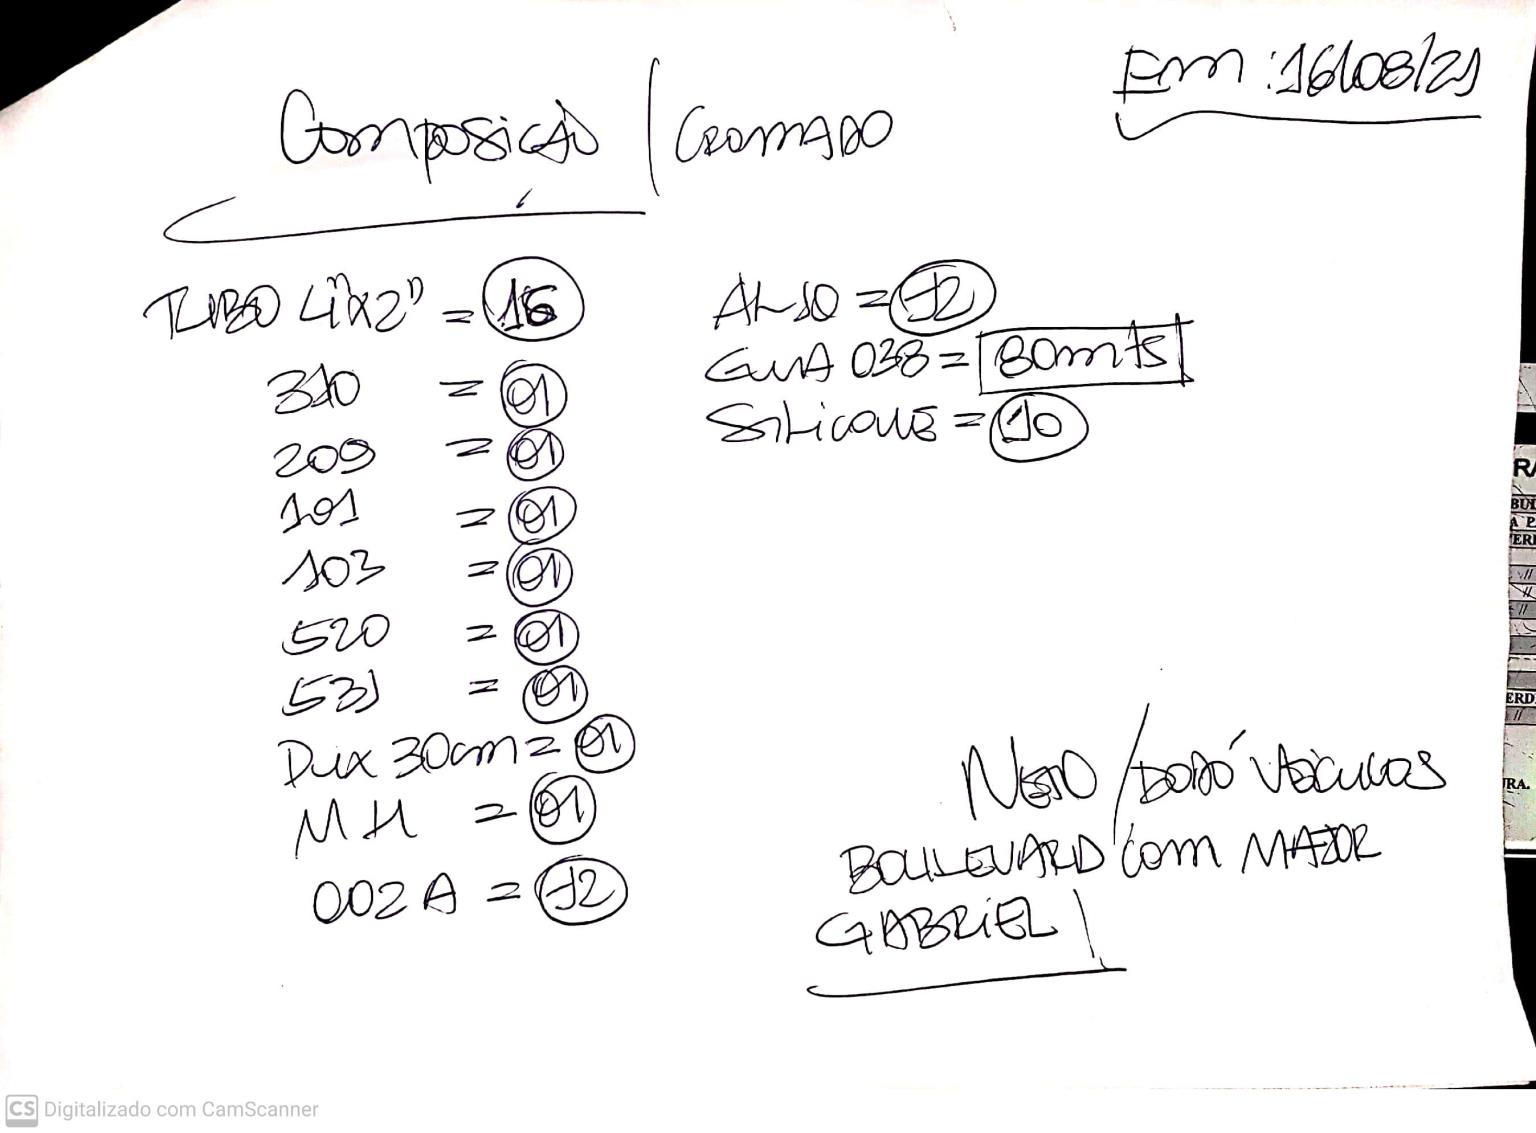 Em: 16/08/21
Composição / CROMADO
TUBO 4"x2" = 16
310 = 01
209 = 01
101 = 01
103 = 01
520 = 01
531 = 01
Dux 30cm = 01
MH = 01
002A = 12
AL-10 = 12
GUIA 038 = 80mts
SILICONE = 10
NETO / DODÓ VEÍCULOS
BOULEVARD com MAJOR
GABRIEL
CS Digitalizado com CamScanner